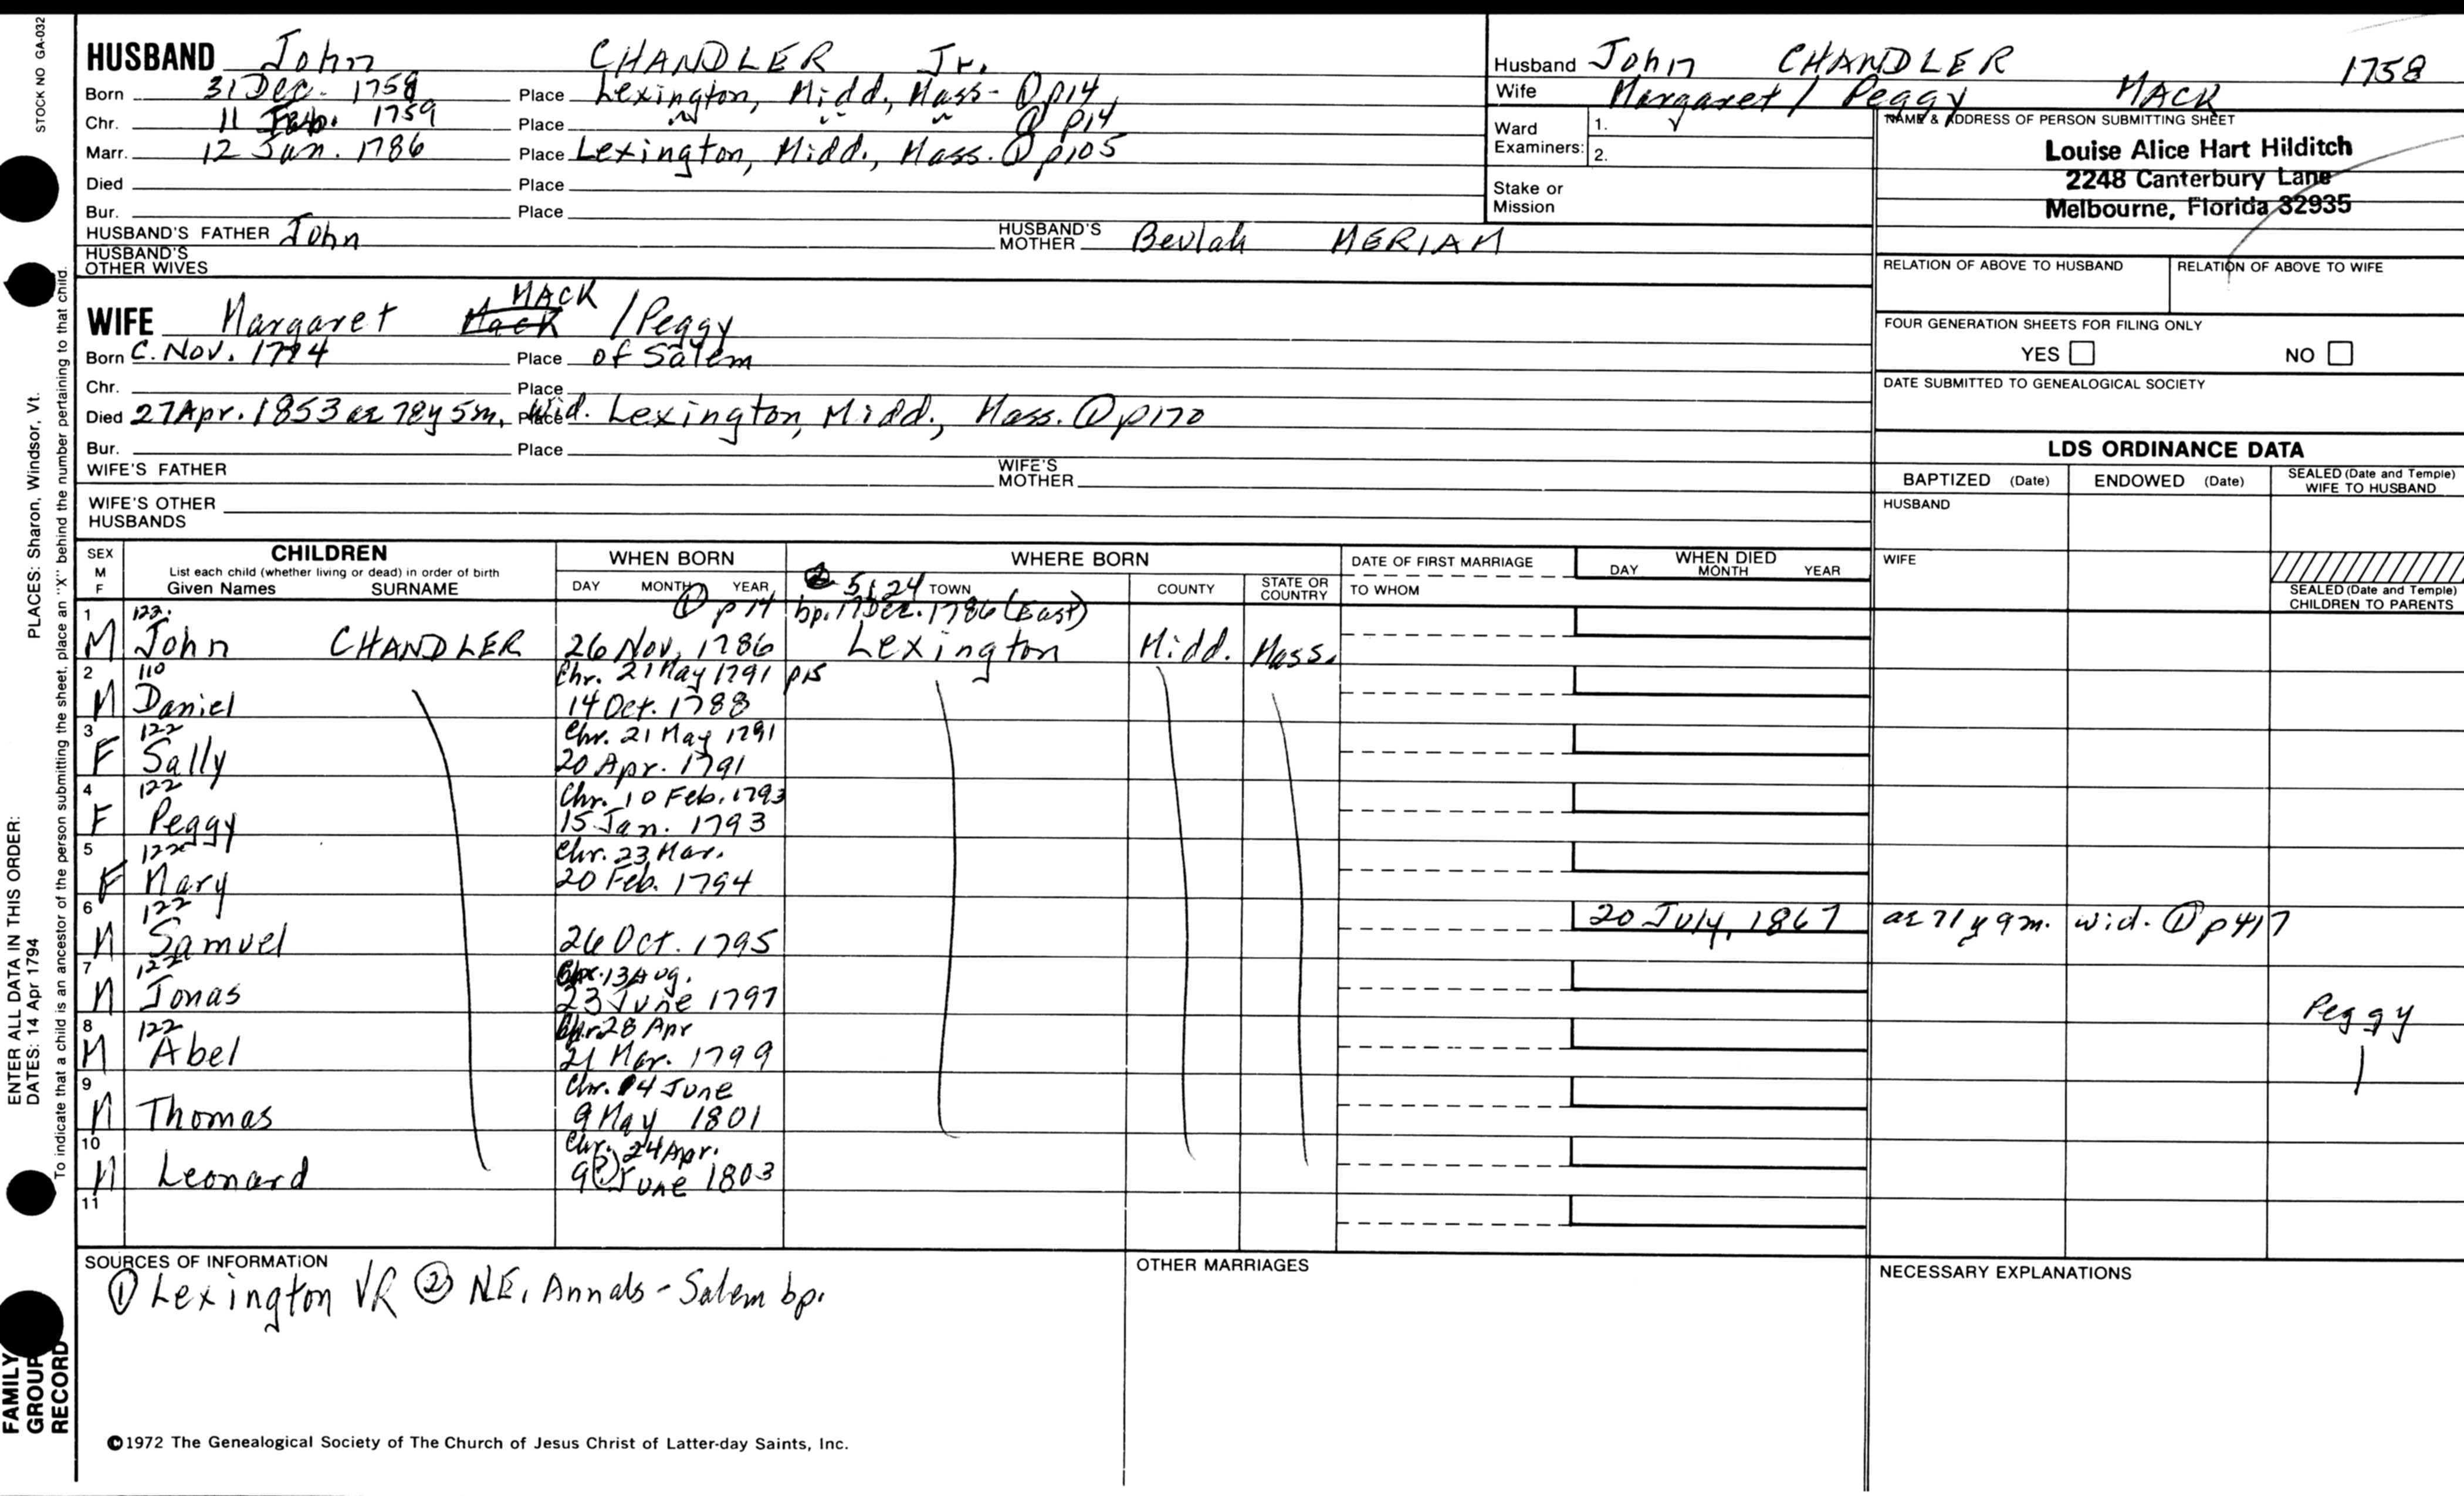 STOCK NO GA-032
HUSBAND John CHANDLER Jr.
Born 31 Dec. 1758 Place Lexington, Midd., Mass - ① p14
Chr. 11 Feb. 1759 Place " " " ① p14
Marr. 12 Jan. 1786 Place Lexington, Midd., Mass. ① p105
Died Place
Bur. Place
HUSBAND'S FATHER John HUSBAND'S MOTHER Beulah MERIAM
HUSBAND'S OTHER WIVES
Husband John CHANDLER 1758
Wife Margaret / Peggy MACK
Ward Examiners: 1. 2.
Stake or Mission
NAME & ADDRESS OF PERSON SUBMITTING SHEET
Louise Alice Hart Hilditch
2248 Canterbury Lane
Melbourne, Florida 32935
RELATION OF ABOVE TO HUSBAND RELATION OF ABOVE TO WIFE
FOUR GENERATION SHEETS FOR FILING ONLY
YES NO
DATE SUBMITTED TO GENEALOGICAL SOCIETY
MACK
WIFE Margaret Mack / Peggy
Born C. Nov. 1774 Place of Salem
Chr. Place
Died 27 Apr. 1853 ae 78y 5m, Place Wid. Lexington, Midd., Mass. ① p170
Bur. Place
WIFE'S FATHER WIFE'S MOTHER
WIFE'S OTHER HUSBANDS
LDS ORDINANCE DATA
BAPTIZED (Date) ENDOWED (Date) SEALED (Date and Temple) WIFE TO HUSBAND
HUSBAND
WIFE
SEALED (Date and Temple) CHILDREN TO PARENTS
SEX M F
CHILDREN
List each child (whether living or dead) in order of birth
Given Names SURNAME
WHEN BORN
DAY MONTH YEAR
WHERE BORN
② 5:24 TOWN COUNTY STATE OR COUNTRY
DATE OF FIRST MARRIAGE
TO WHOM
WHEN DIED
DAY MONTH YEAR
1 122. ① p14 bp. 17 Dec. 1786 (East)
M John CHANDLER 26 Nov. 1786 Lexington Midd. Mass.
2 110 Chr. 21 May 1791 p15
M Daniel 14 Oct. 1788
3 122 Chr. 21 May 1791
F Sally 20 Apr. 1791
4 122 Chr. 10 Feb. 1793
F Peggy 15 Jan. 1793
5 122 Chr. 23 Mar.
F Mary 20 Feb. 1794
6 122 20 July, 1867 ae 71 y 9 m. wid. ① p417
M Samuel 26 Oct. 1795
7 122 Chr. 13 Aug.
M Jonas 23 June 1797
Peggy
8 122 Chr. 28 Apr
M Abel 21 Mar. 1799
9 Chr. 14 June
M Thomas 9 May 1801
10 Chr. 24 Apr.
M Leonard 9(?) June 1803
11
SOURCES OF INFORMATION
① Lexington VR ② N.E. Annals - Salem bp.
OTHER MARRIAGES
NECESSARY EXPLANATIONS
©1972 The Genealogical Society of The Church of Jesus Christ of Latter-day Saints, Inc.
ENTER ALL DATA IN THIS ORDER:
DATES: 14 Apr 1794 PLACES: Sharon, Windsor, Vt.
To indicate that a child is an ancestor of the person submitting the sheet, place an "X" behind the number pertaining to that child.
FAMILY GROUP RECORD